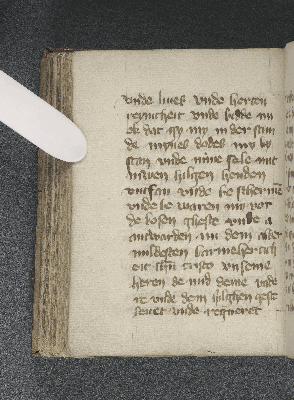 vnde liues vnde herten
reynicheit vnde bidde nu
ok dat gy my in der stun
de mynes dodes my by
stan vnde mine sele mit
juwen hilgen henden
vntfan vnde be schermē
vnde be waren my vor
de bosen gheste vnde a
antwarden an dem alder
mildesten barmeherich
eit ihū cristo vnseme
heren de mid deme vade
re vnde dem hilghen gest
leuet vnde regneret